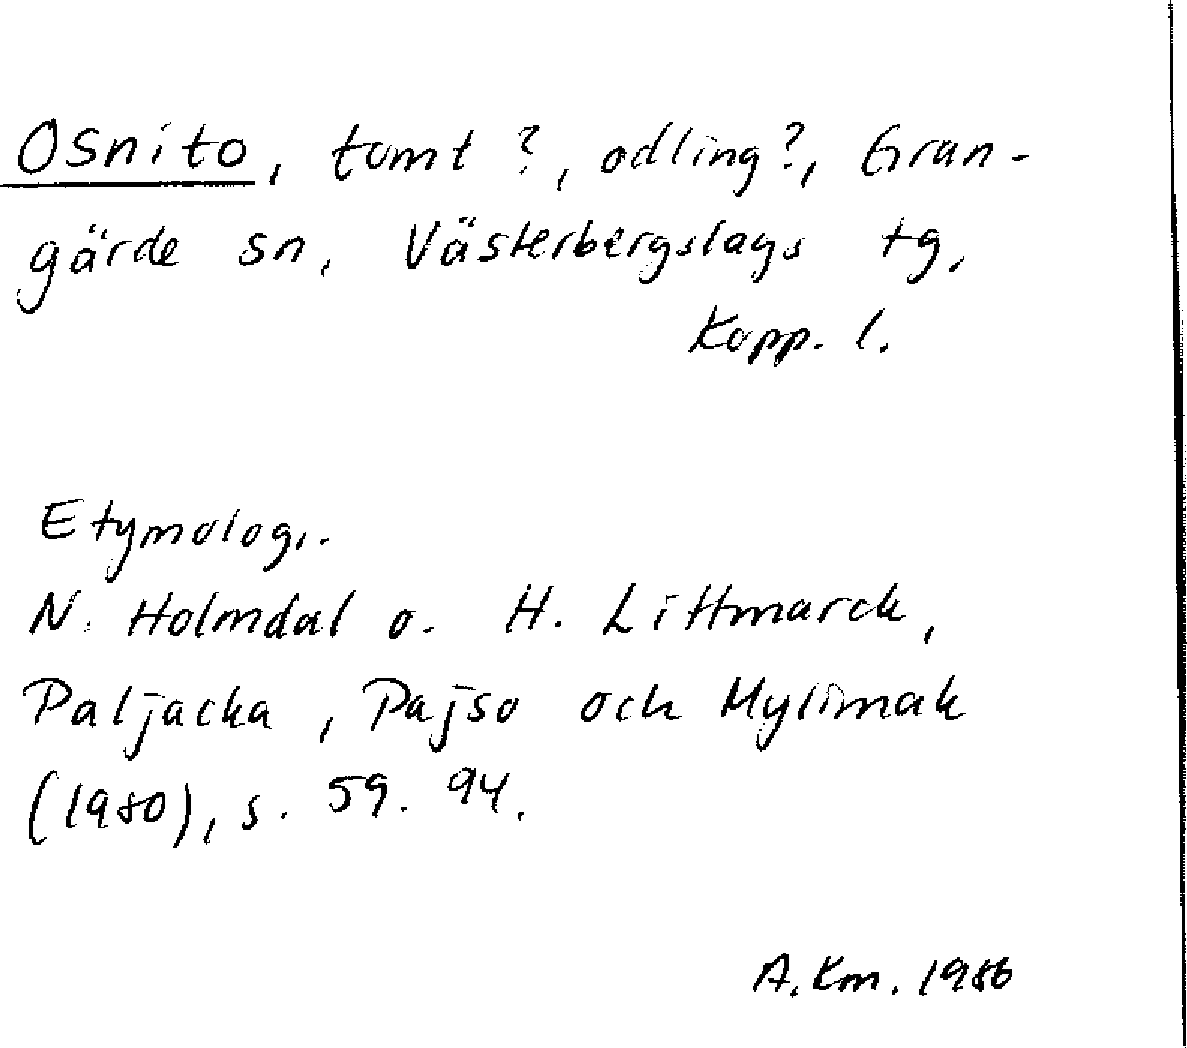 Osnito, tomt?, odling?, Gran-
gärde sn, Västerbergslags tg,
Kopp. l.
Etymologi.
N. Holmdal o. H. Littmarck,
Paljacka, Pajso och Mylimak
(1980), s. 59. 94.
A. Km. 1986